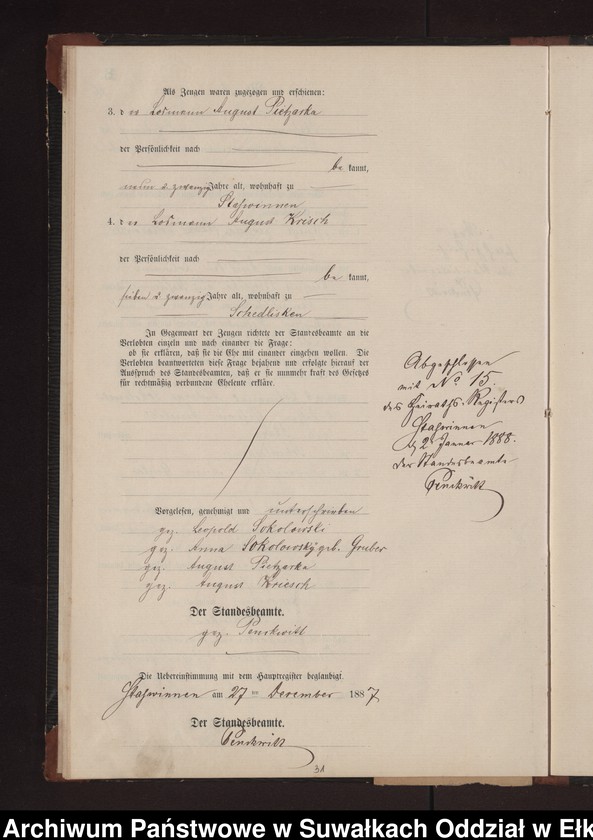 Als Zeugen waren zugezogen und erschienen:
3. der Losmann August Pietzarka
der Persönlichkeit nach
be kannt,
neun u. zwanzig Jahre alt, wohnhaft zu
Staswinnen
4. der Losmann August Krisch
der Persönlichkeit nach
be kannt,
sieben u. zwanzig Jahre alt, wohnhaft zu
Schedlisken
In Gegenwart der Zeugen richtete der Standesbeamte an die
Verlobten einzeln und nach einander die Frage:
ob sie erklären, daß sie die Ehe mit einander eingehen wollen. Die
Verlobten beantworteten diese Frage bejahend und erfolgte hierauf der
Ausspruch des Standesbeamten, daß er sie nunmehr kraft des Gesetzes
für rechtmäßig verbundene Eheleute erkläre.
Vorgelesen, genehmigt und unterschrieben
gez. Leopold Sokolowski
gez. Anna Sokolowsky geb. Gruber
gez. August Pietzarka
gez. August Kriesch
Der Standesbeamte.
gez. Penskwitt
Die Uebereinstimmung mit dem Hauptregister beglaubigt
Staswinnen am 27 ten Dezember 1887
Der Standesbeamte.
Penskwitt
31
Abgeschlossen
mit No. 15.
des Heiraths-Registers
Staswinnen
2. Januar 1888.
Der Standesbeamte
Penskwitt
Archiwum Państwowe w Suwałkach Oddział w Ełk